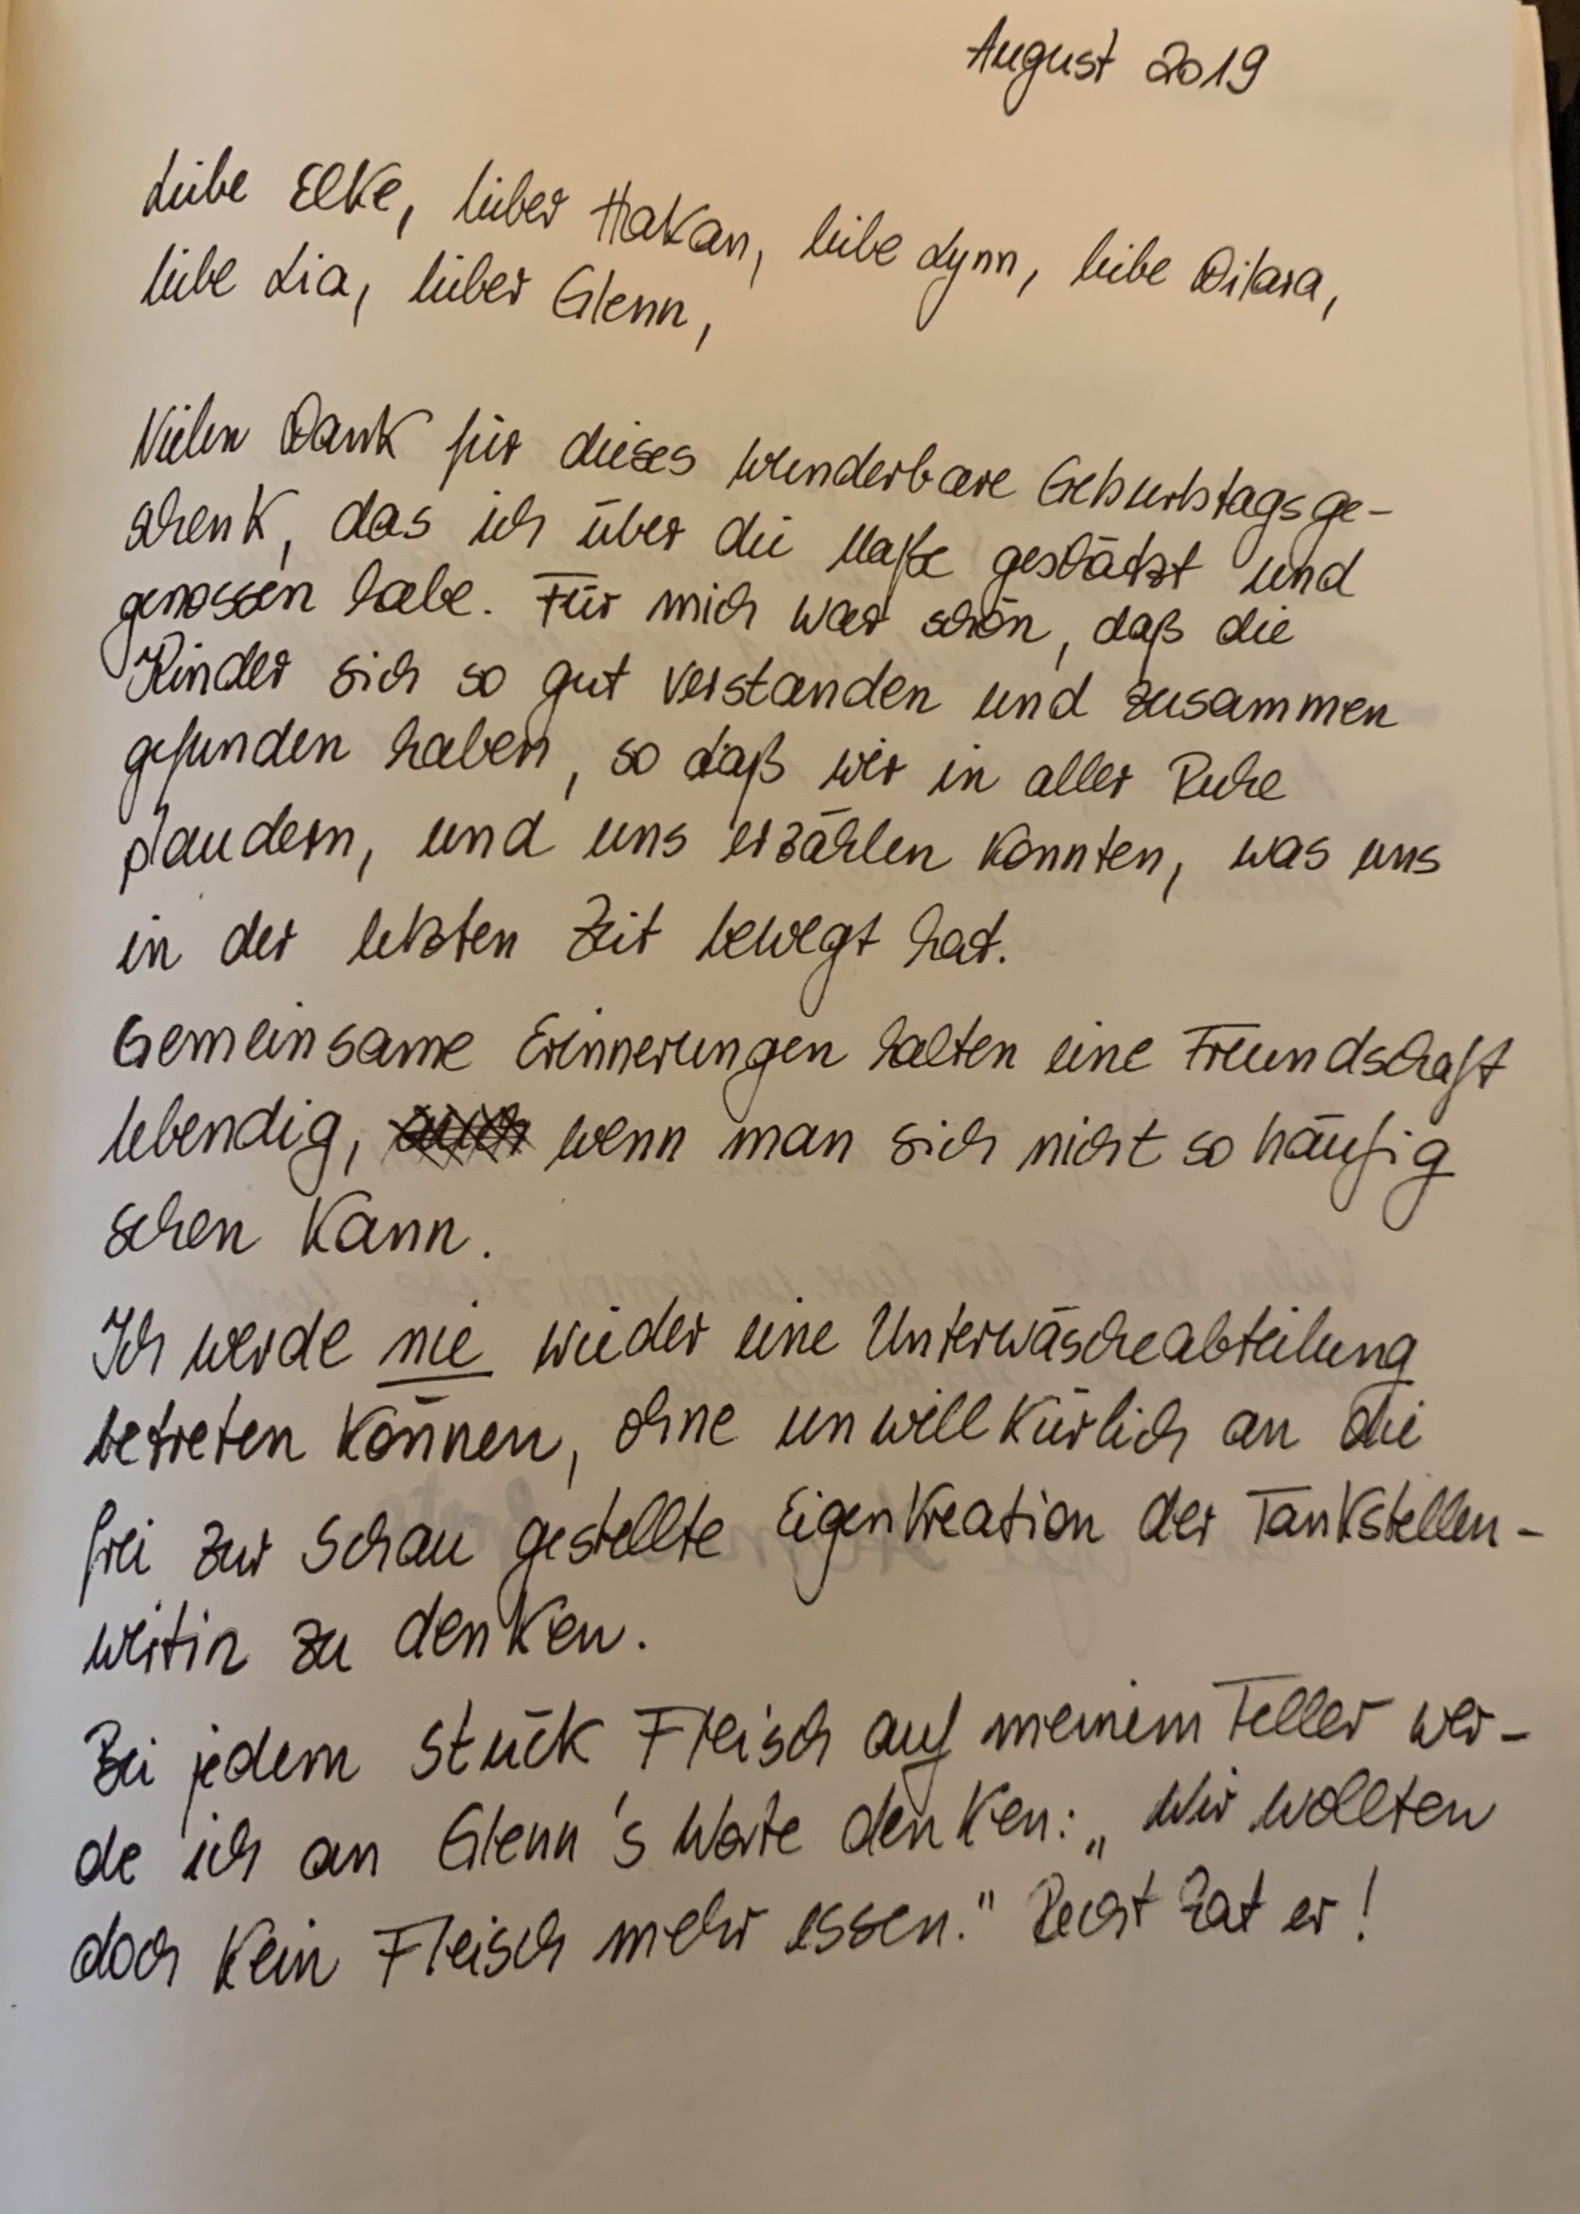 August 2019
Liebe Elke, lieber Hakan, liebe Lynn, liebe Dilara,
liebe Lia, lieber Glenn,
Vielen Dank für dieses wunderbare Geburtstagsge-
schenk, das ich über die Maße geschätzt und
genossen habe. Für mich war schön, daß die
Kinder sich so gut verstanden und zusammen
gefunden haben, so daß wir in aller Ruhe
plaudern, und uns erzählen konnten, was uns
in der letzten Zeit bewegt hat.
Gemeinsame Erinnerungen halten eine Freundschaft
lebendig, wenn man sich nicht so häufig
sehen kann.
Ich werde nie wieder eine Unterwäscheabteilung
betreten können, ohne unwillkürlich an die
frei zur Schau gestellte Eigenkreation der Tankstellen-
wirtin zu denken.
Bei jedem Stück Fleisch auf meinem Teller wer-
de ich an Glenn's Worte denken: „Wir wollten
doch kein Fleisch mehr essen." Recht hat er!